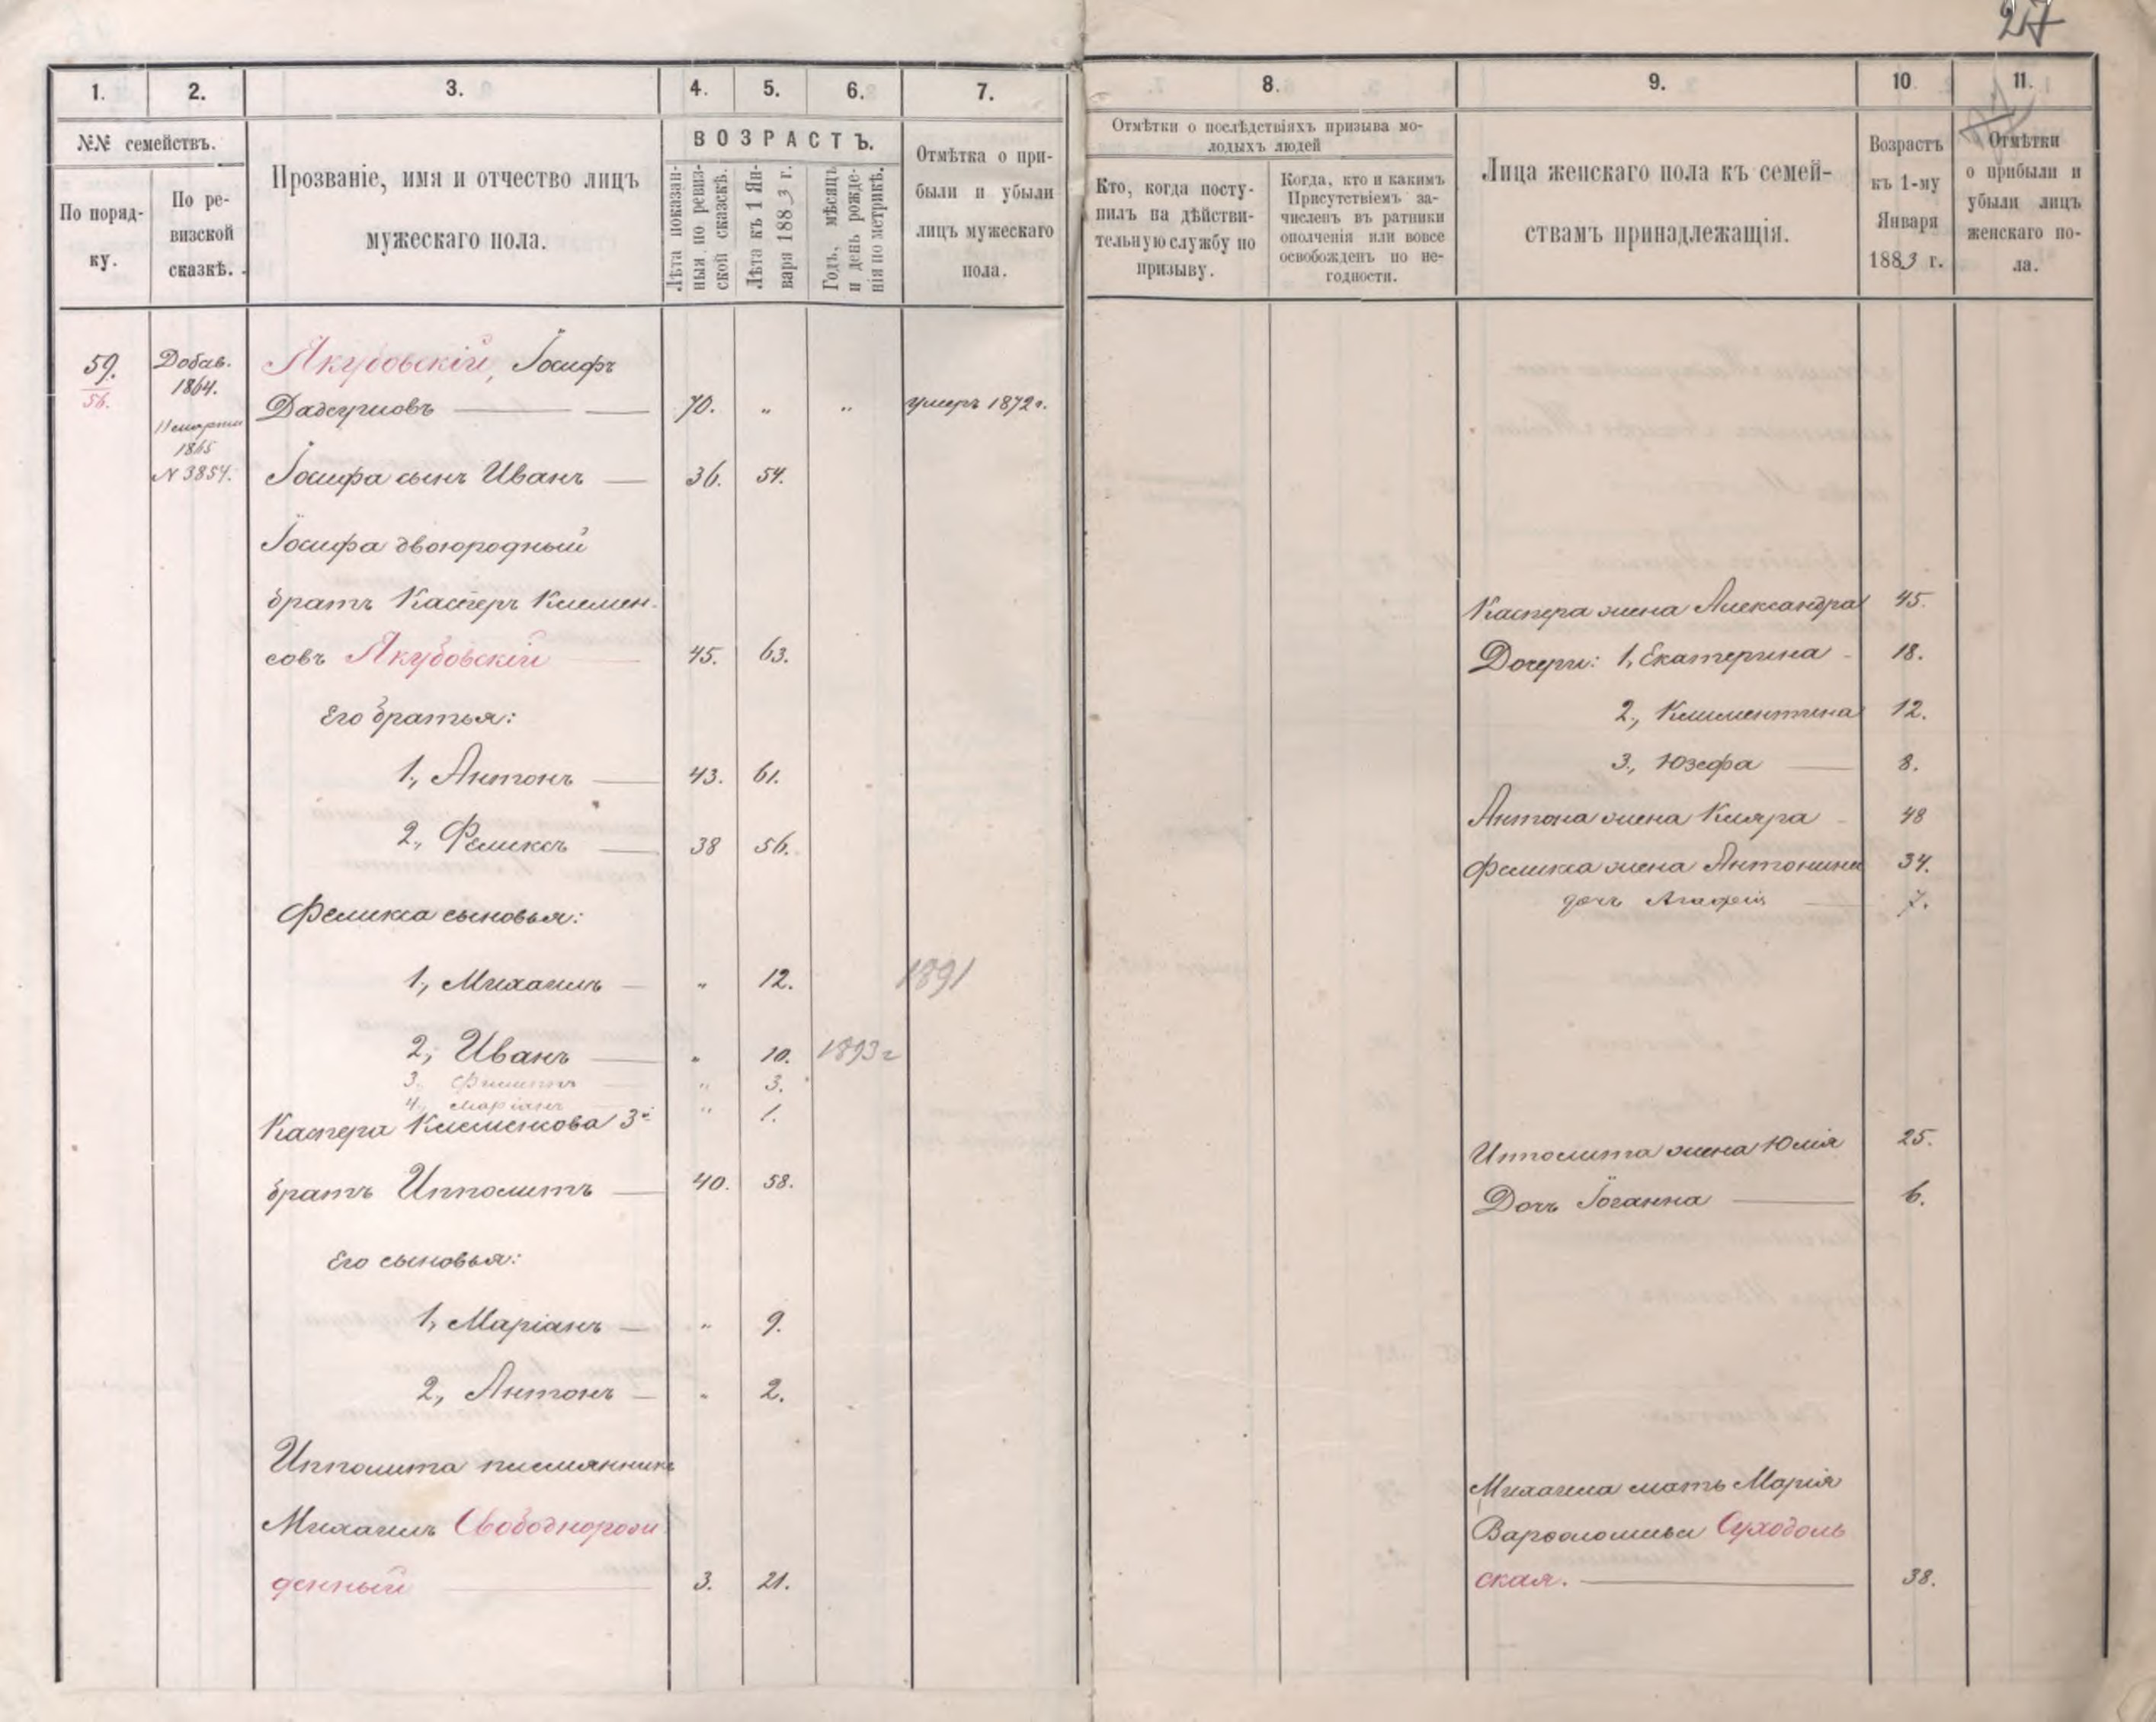 27
1.
2.
3.
4.
5.
6.
7.
8.
9.
10.
11.
№№ семействъ.
По поряд-
ку.
По ре-
визской
сказкѣ.
Прозваніе, имя и отчество лицъ
мужескаго пола.
ВОЗРАСТЪ.
Лѣта показан-
ныя по ревиз-
ской сказскѣ.
Лѣта къ 1 Ян-
варя 1883 г.
Годъ, мѣсяцъ
и день рожде-
нія по метрикѣ.
Отмѣтка о при-
были и убыли
лицъ мужескаго
пола.
Отмѣтки о послѣдствіяхъ призыва мо-
лодыхъ людей
Кто, когда посту-
пилъ на дѣйстви-
тельную службу по
призыву.
Когда, кто и какимъ
Присутствіемъ за-
численъ въ ратники
ополченія или вовсе
освобожденъ по не-
годности.
Лица женскаго пола къ семей-
ствамъ принадлежащія.
Возрастъ
къ 1-му
Января
1883 г.
Отмѣтки
о прибыли и
убыли лицъ
женскаго по-
ла.
59.
56.
Добав.
1864.
11 марта
1865
N 3854.
Якубовскій, Іосифъ
70. " " умеръ 1872 г.
Іосифа сынъ Иванъ — 36. 54.
Іосифа двоюродный
братъ Касперъ Клемен-
совъ Якубовскій 45. 63.
Его братья:
1., Антонъ — 43. 61.
2., Феликсъ — 38 56.
Феликса сыновья:
1., Михаилъ — " 12. 1891
2., Иванъ — " 10. 1893 г
3., Филиппъ — " 3.
4., Маріанъ — " 1.
Каспера Клеменсова 3й
братъ Ипполитъ — 40. 58.
Его сыновья:
1., Маріанъ — " 9.
2., Антонъ — " 2.
Ипполита племянникъ
Михаилъ Свободнорож
денный — 3. 21.
Каспера жена Александра 45.
Дочери: 1., Екатерина - 18.
2., Клементина 12.
3., Юзефа — 8.
Антона жена Кляра - 48
Феликса жена Антонина 34.
дочь Агафія — 7.
Ипполита жена Юлія 25.
Дочь Іоганна — 6.
Михаила мать Марія
Варфоломѣева Суходоль
ская. — 38.